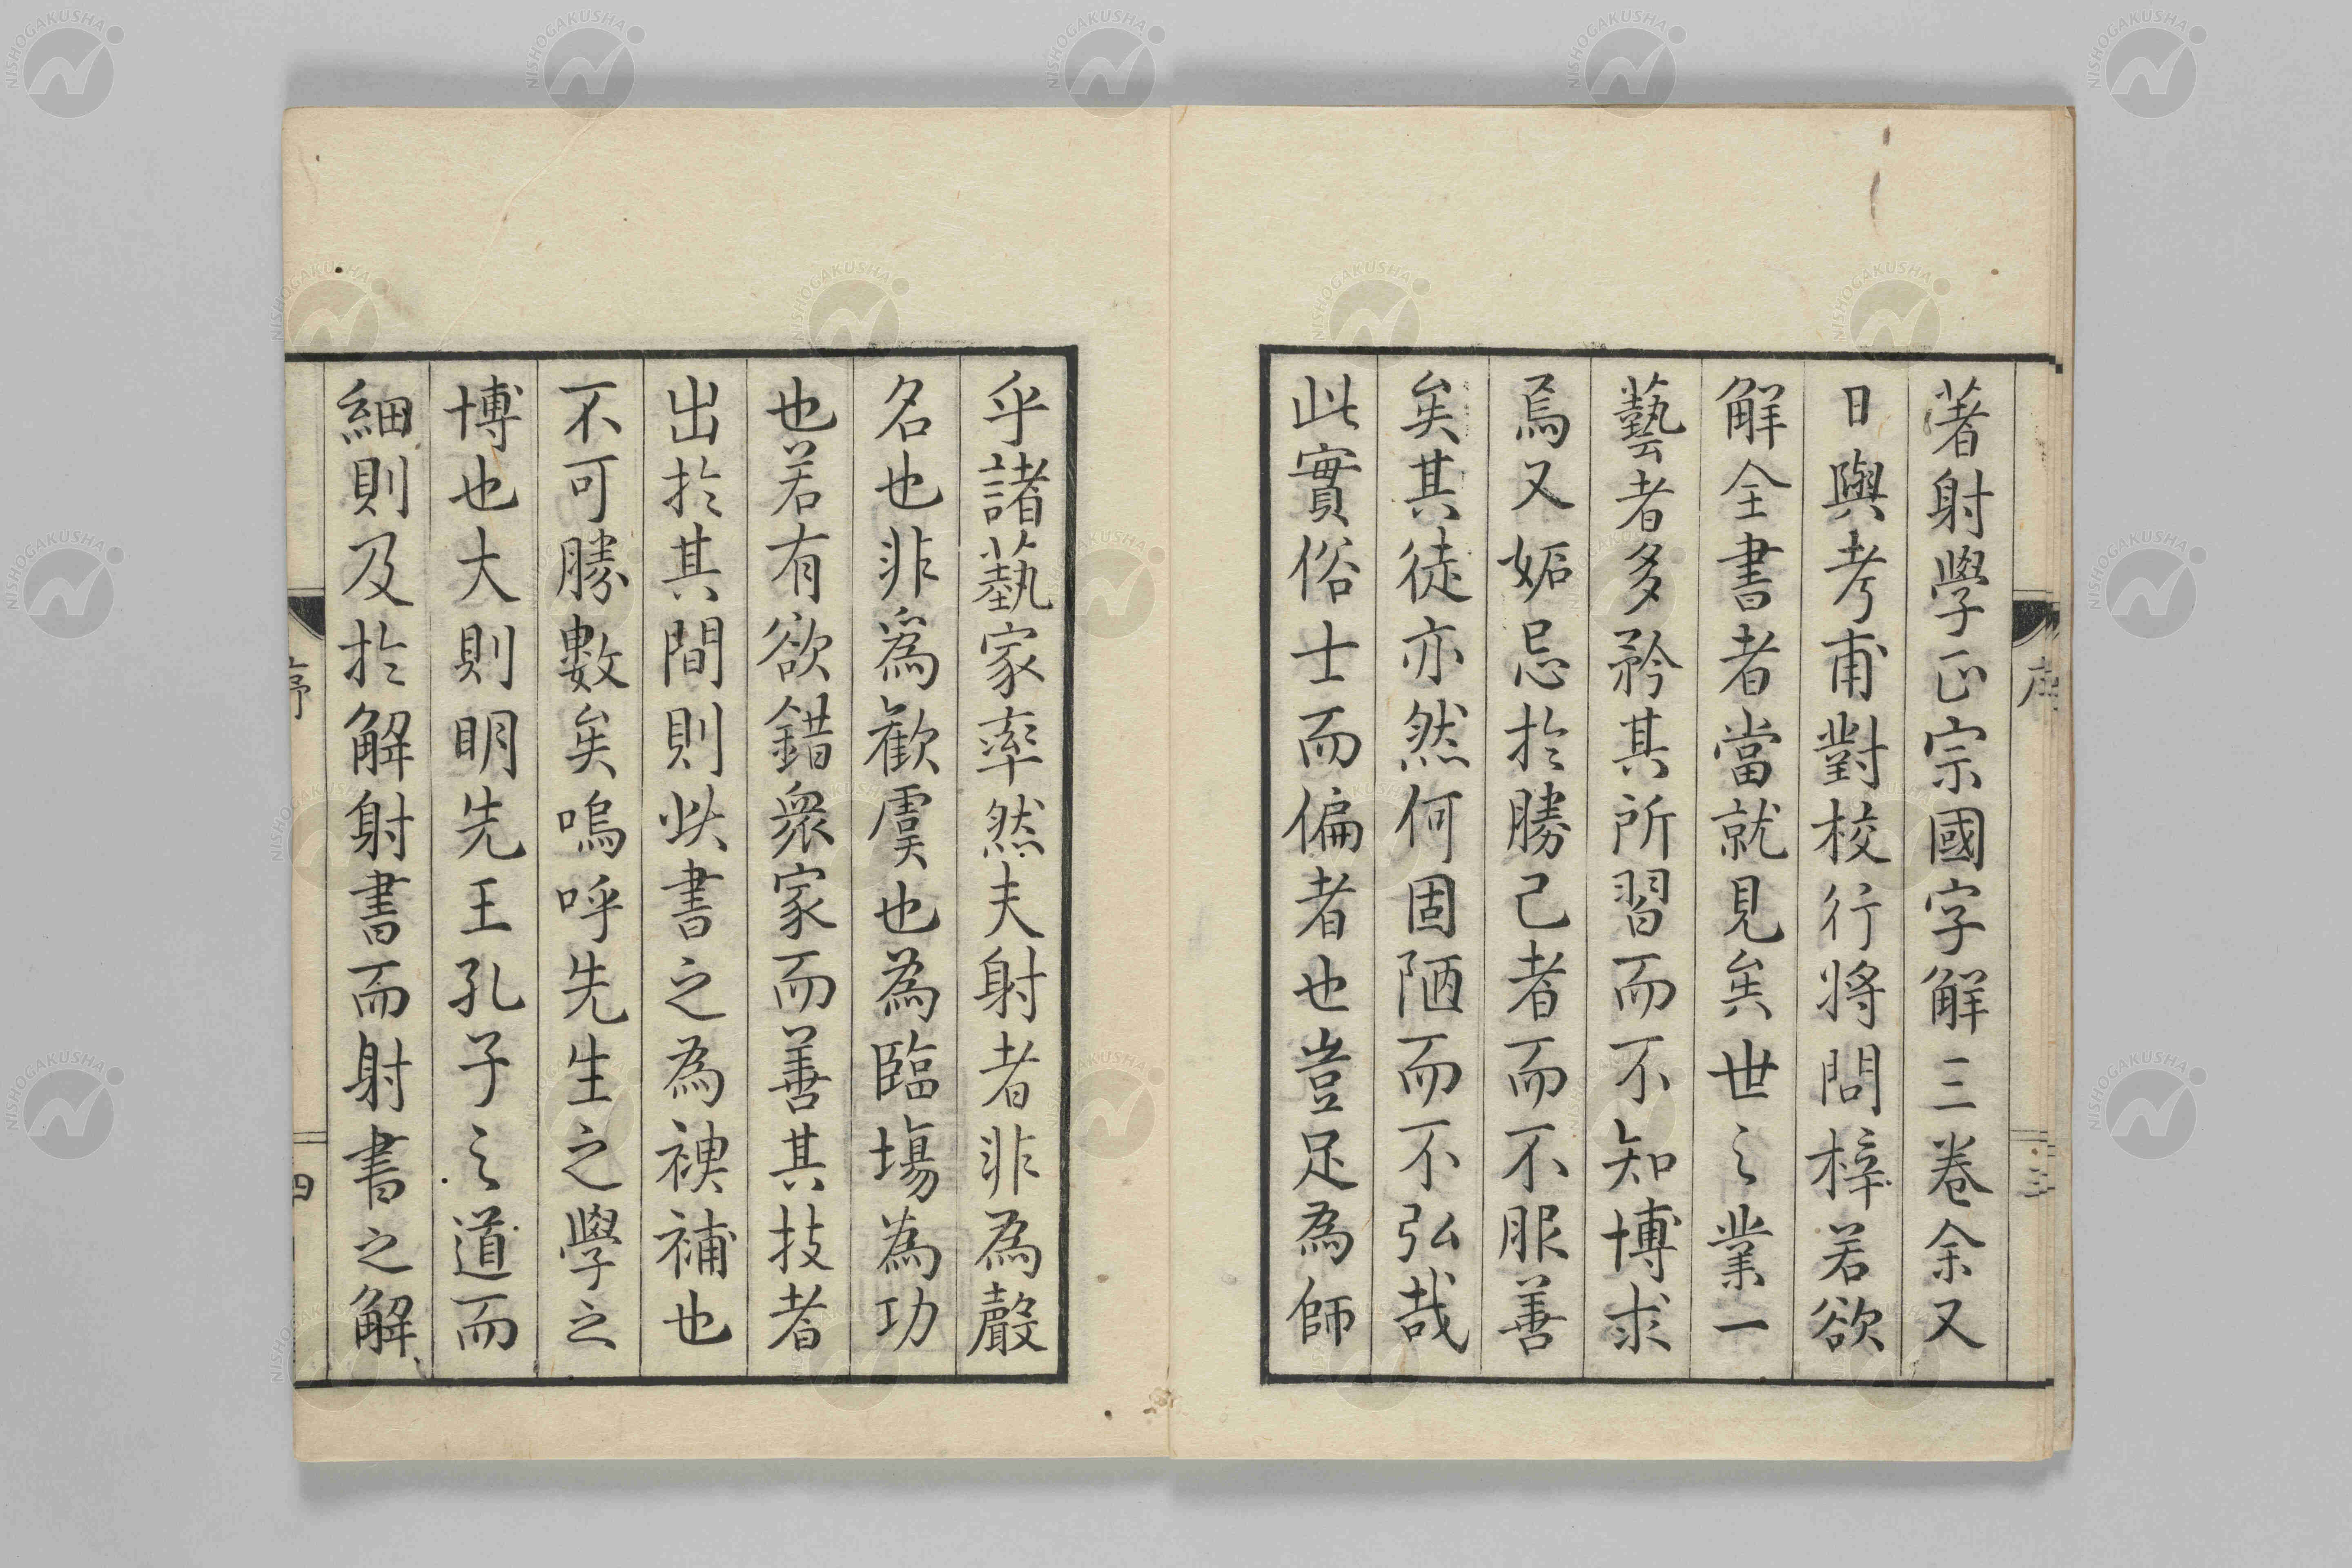 著射學正宗國字解三卷余又
日與考甫對校行將問梓若欲
解全書者當就見矣世之業一
藝者多矜其所習而不知博求
焉又妬忌於勝己者而不服善
矣其徒亦然何固陋而不弘哉
此實俗士而偏者也豈足為師
乎諸藝家率然夫射者非為聲
名也非爲歡虞也為臨塲為功
也若有欲錯衆家而善其技者
出於其間則此書之為裨補也
不可勝數矣嗚呼先生之學之
博也大則明先王孔子之道而
細則及於解射書而射書之解
序
四
序
三
NISHOGAKUSHA